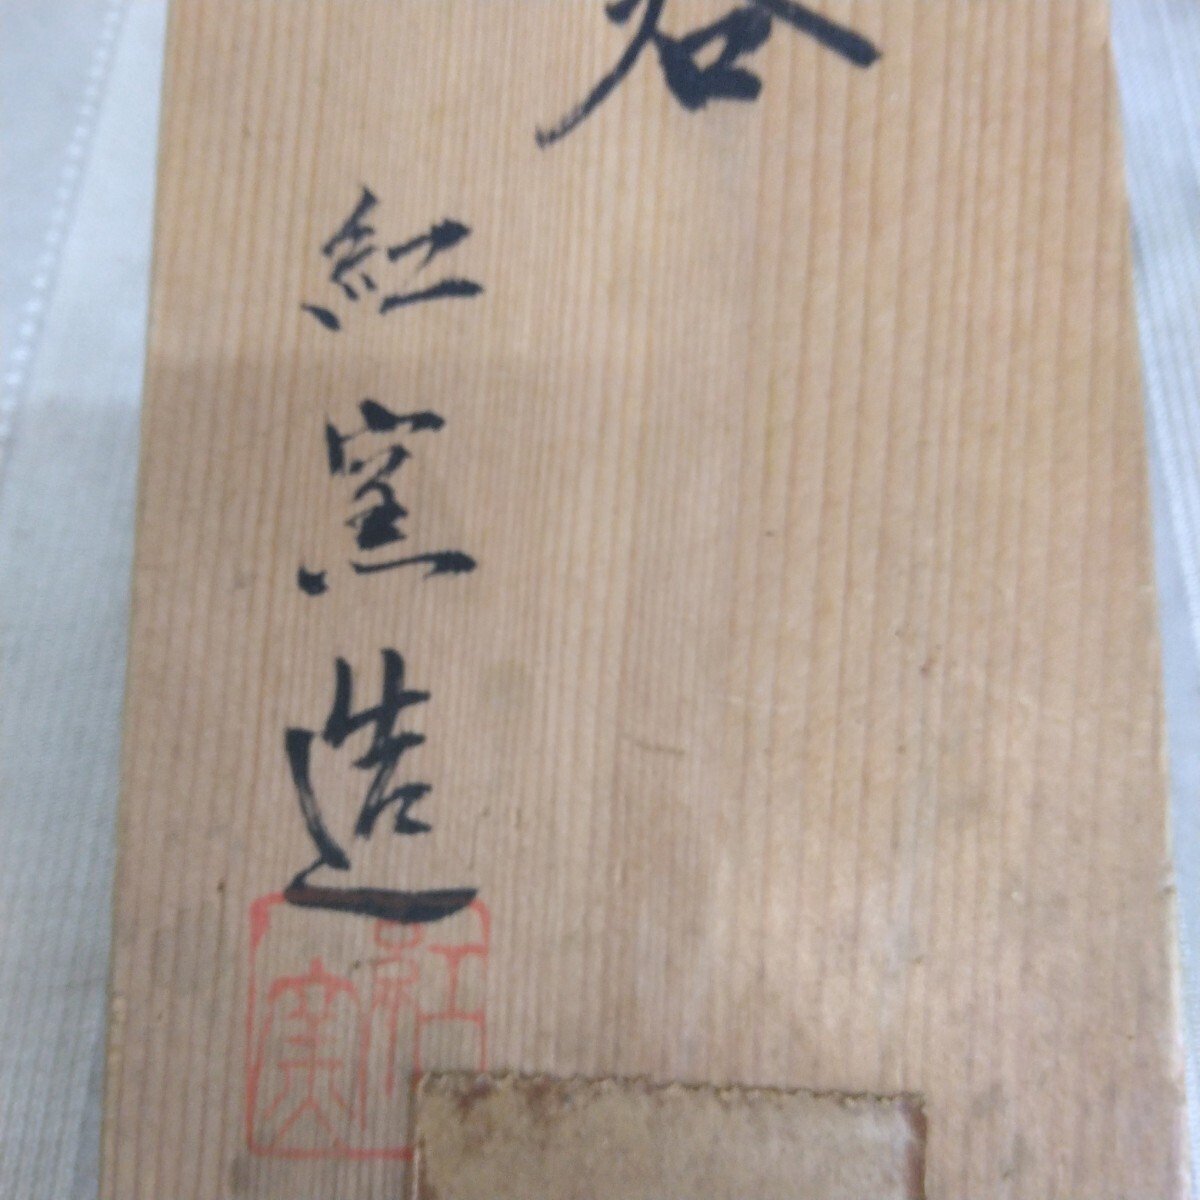 紅窯造
紅窯